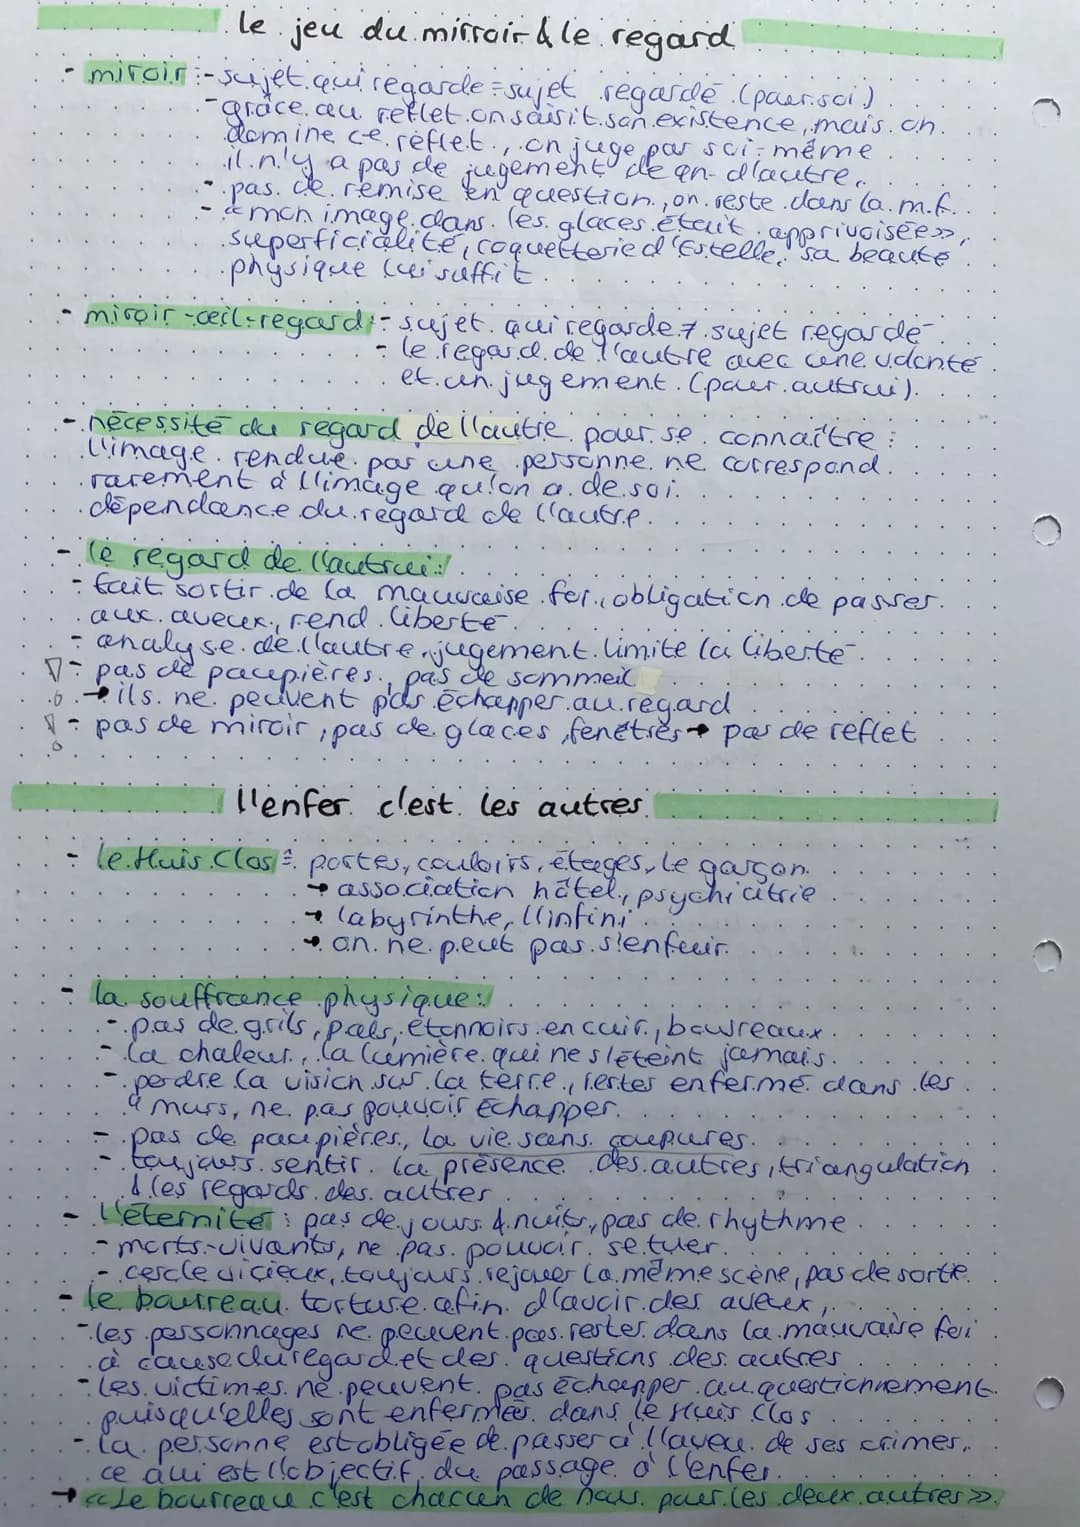 le jeu du mirroir & le regard
- miroir :- sujet qui regarde = sujet regardé (pour soi)
- grâce au reflet on saisit son existence, mais on
domine ce reflet, on juge par soi-même
il n'y a pas de jugement de qn d'autre,
- pas de remise en question, on reste dans la m.f.
- « mon image dans les glaces était apprivoisée »,
superficialité, coquetterie d'Estelle, sa beauté
physique lui suffit
- miroir-œil-regard :- sujet qui regarde ≠ sujet regardé
- le regard de l'autre avec une volonté
et un jugement (pour autrui).
- nécessité du regard de l'autre pour se connaître :
l'image rendue par une personne ne correspond
rarement à l'image qu'on a de soi.
dépendance du regard de l'autre.
- le regard de l'autrui :
- fait sortir de la mauvaise foi, obligation de passer
aux aveux, rend liberté
- analyse de l'autre, jugement limite la liberté
- pas de paupières, pas de sommeil
→ ils ne peuvent pas échapper au regard
- pas de miroir, pas de glaces, fenêtres → pas de reflet
l'enfer c'est les autres
- le Huis Clos : portes, couloirs, étages, le garçon
→ association hôtel, psychiatrie
→ labyrinthe, l'infini
→ on ne peut pas s'enfuir.
- la souffrance physique :
- pas de grils, pals, étonnoirs en cuir, bourreaux
- la chaleur, la lumière qui ne s'éteint jamais.
- perdre la vision sur la terre, rester enfermé dans les
4 murs, ne pas pouvoir échapper.
- pas de paupières, la vie sans coupures.
- toujours sentir la présence des autres, triangulation
& les regards des autres
- l'éternité : pas de jours & nuits, pas de rhythme
- morts-vivants, ne pas pouvoir se tuer.
- cercle vicieux, toujours rejouer la même scène, pas de sortie.
- le bourreau torture afin d'avoir des aveux,
- les personnages ne peuvent pas rester dans la mauvaise foi
à cause du regard et des questions des autres
- les victimes ne peuvent pas échapper au questionnement
puisqu'elles sont enfermées dans le Huis Clos
- la personne est obligée de passer à l'aveu de ses crimes,
ce qui est l'objectif du passage à l'enfer.
→ « Le bourreau c'est chacun de nous pour les deux autres ».